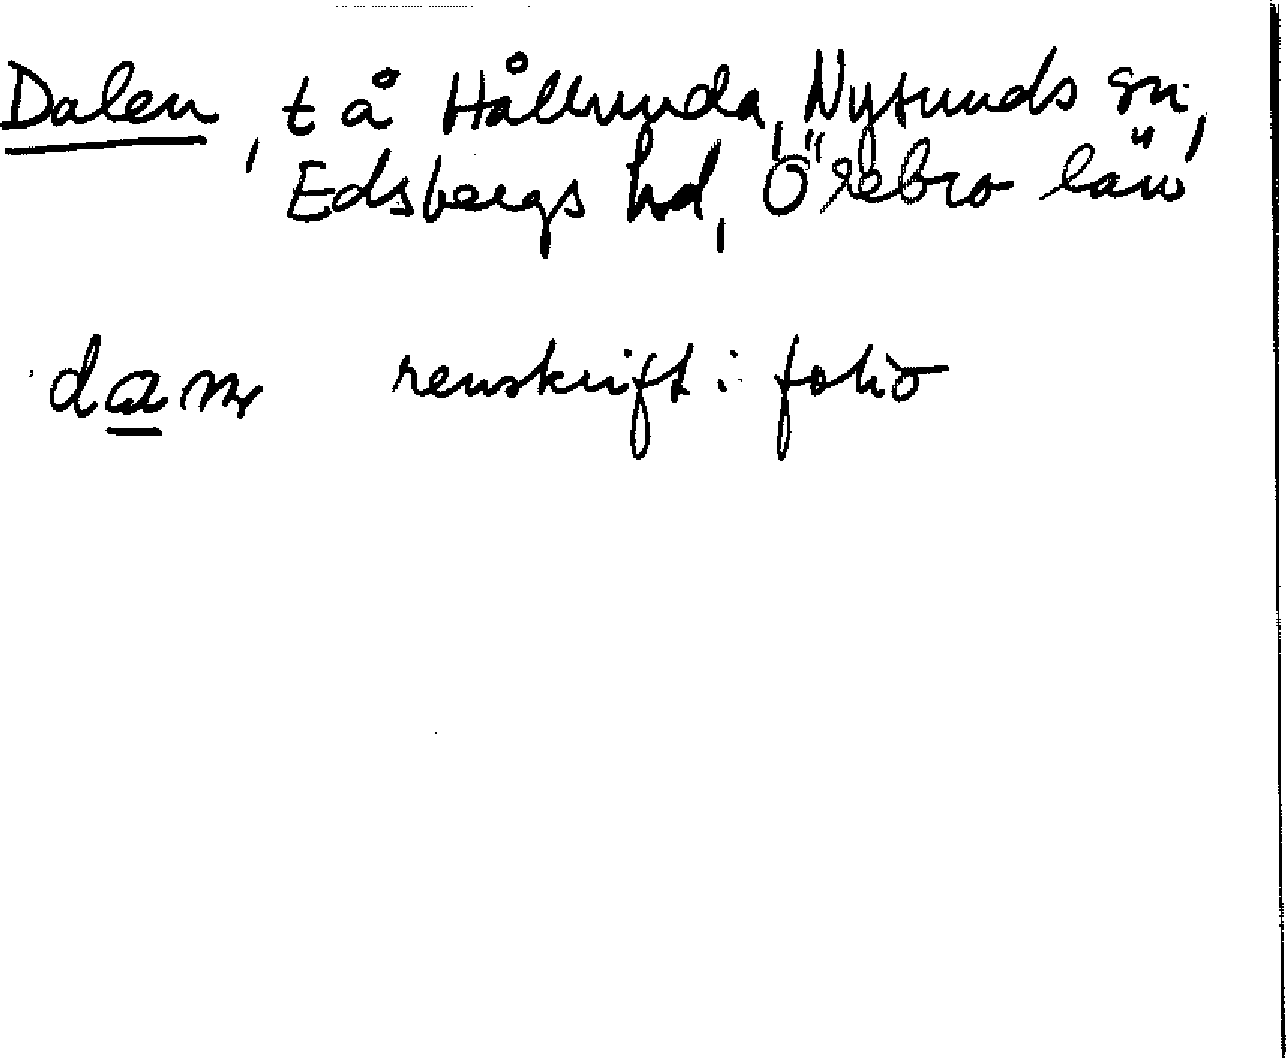 Dalen, t å Hållunda, Nysunds sn,
Edsbergs hd, Örebro län
renskrift i folio